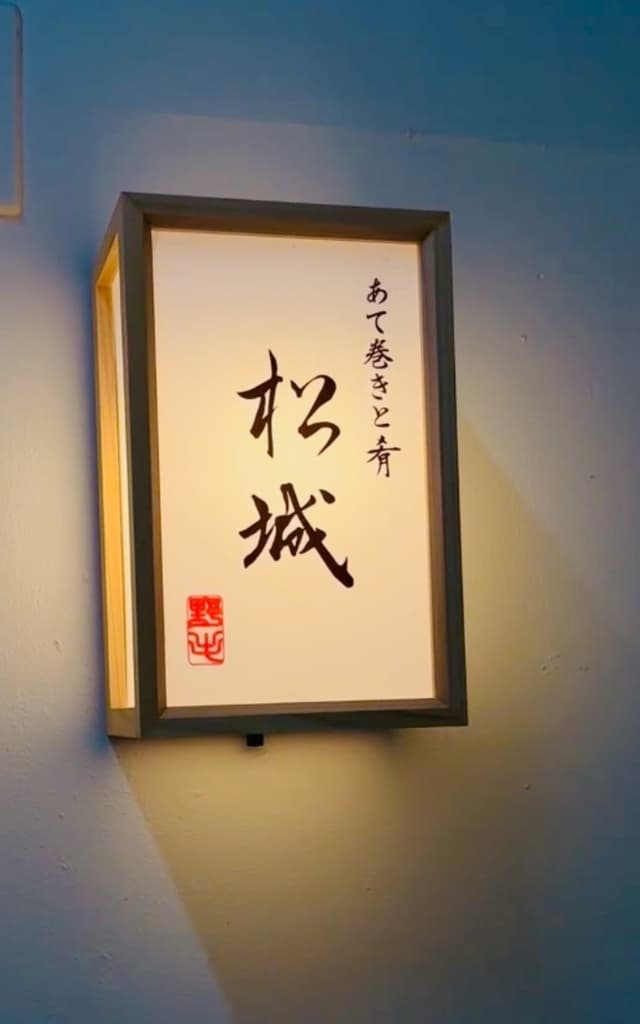 あて巻きと肴
松城